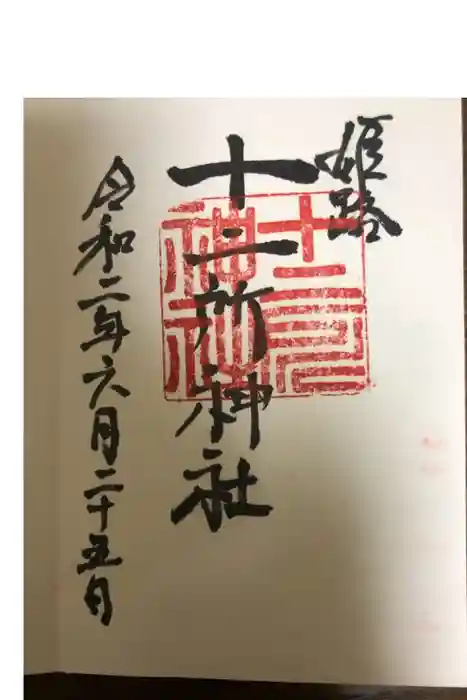 姫路
十二所神社
十二所神社
令和二年六月二十五日